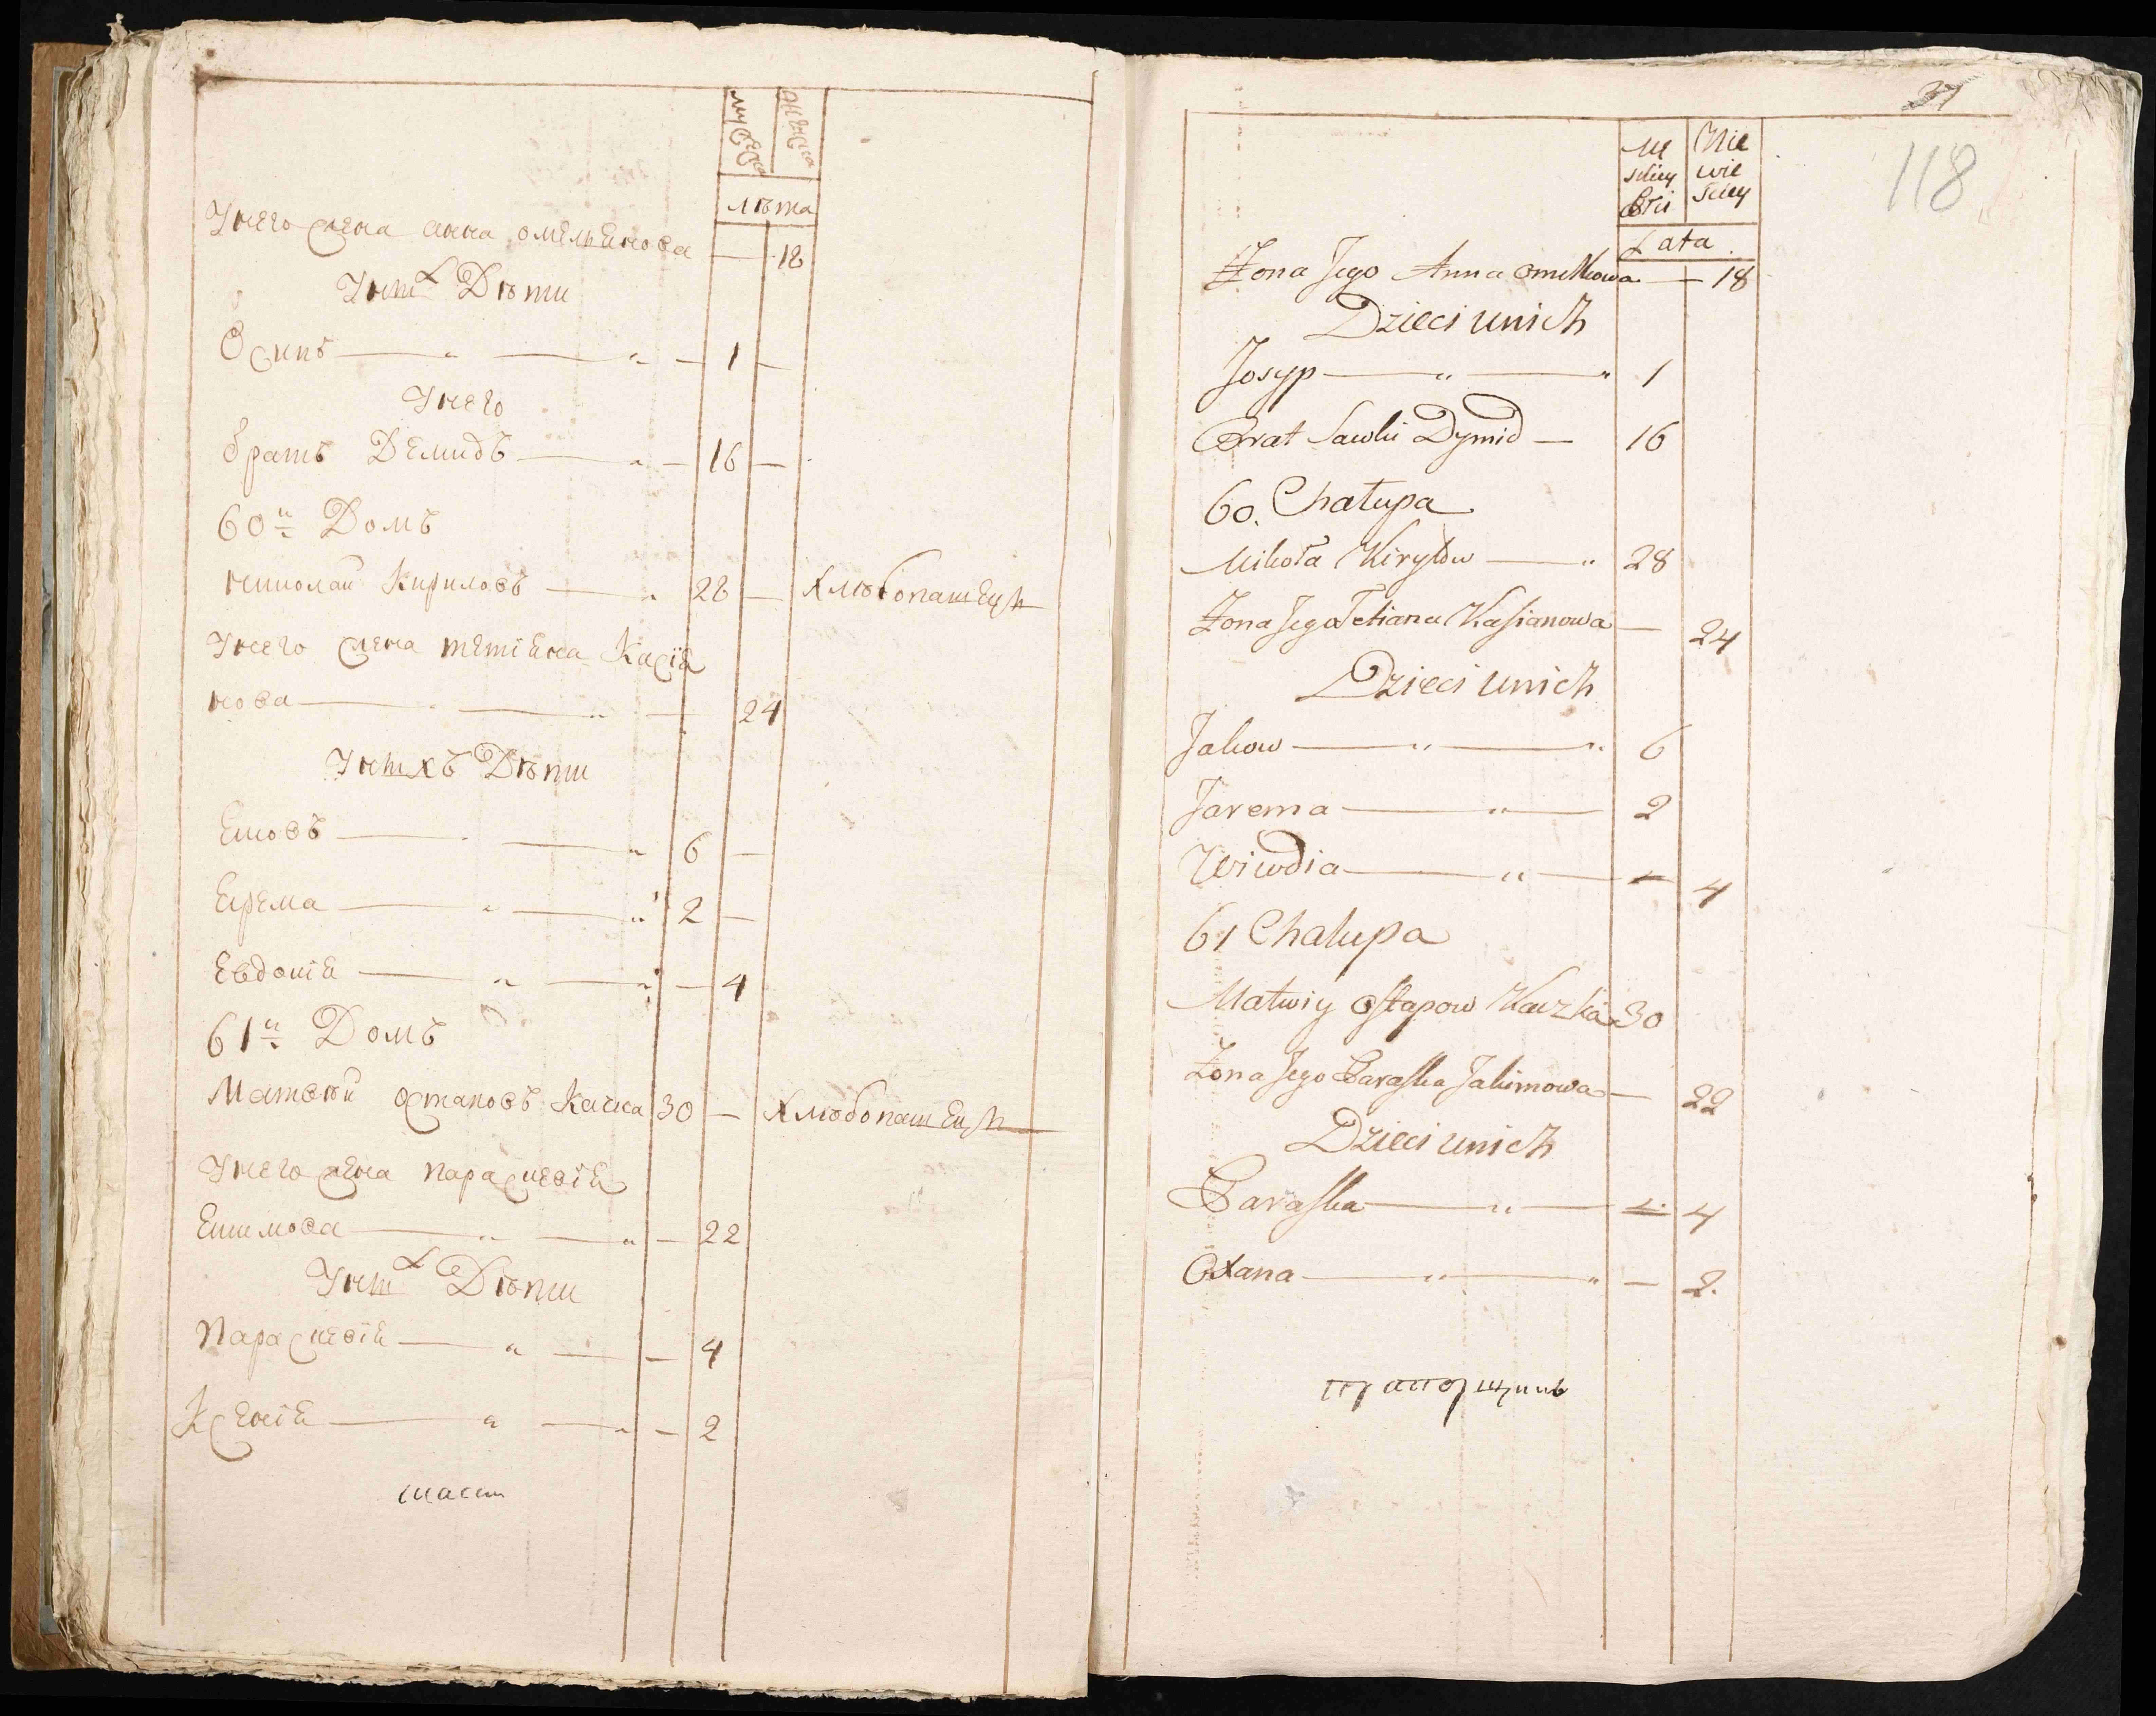 мужеска
женска
лѣта
У него жена анна омельянова — 18
У них Дѣти
Осипъ — " — " — 1 —
У него
братъ Демидъ — " — 16 —
60й Домъ
николай Кириловъ — " 28 — хлѣбопашецъ
У него жена тетіяна Касія
нова — " — " — 24
У нихъ Дѣти
Яковъ — " — " 6 —
Ярема — " — " 2 —
Евдокія — " — " — 4
61й Домъ
Матвѣй Остаповъ Качка 30 — хлѣбопашецъ
У него жена параскевія
Якимова — " — " — 22
У них Дѣти
Параскевія — " — — 4
Ксенія — " — " — 2
37
118
Mę skiey Płci
Nie wie sciey
Lata
Żona Jego Anna Omelkowa — 18
Dzieci unich
Josyp — " — " 1
Brat Sawki Dymid — 16
60. Chałupa
Mikoła Kiryłow — " 28
Żona Jego Tetiana Kasianowa — 24
Dzieci unich
Jakow — " — " 6
Jarema — " — 2
Wiwdia — " — — 4
61 Chalupa
Matwiy Ostapow Kaczka 30
Żona Jego Paraska Jakimowa — 22
Dzieci unich
Paraska — " — — 4
Oxana — " — " — 2.
прапорщикъ